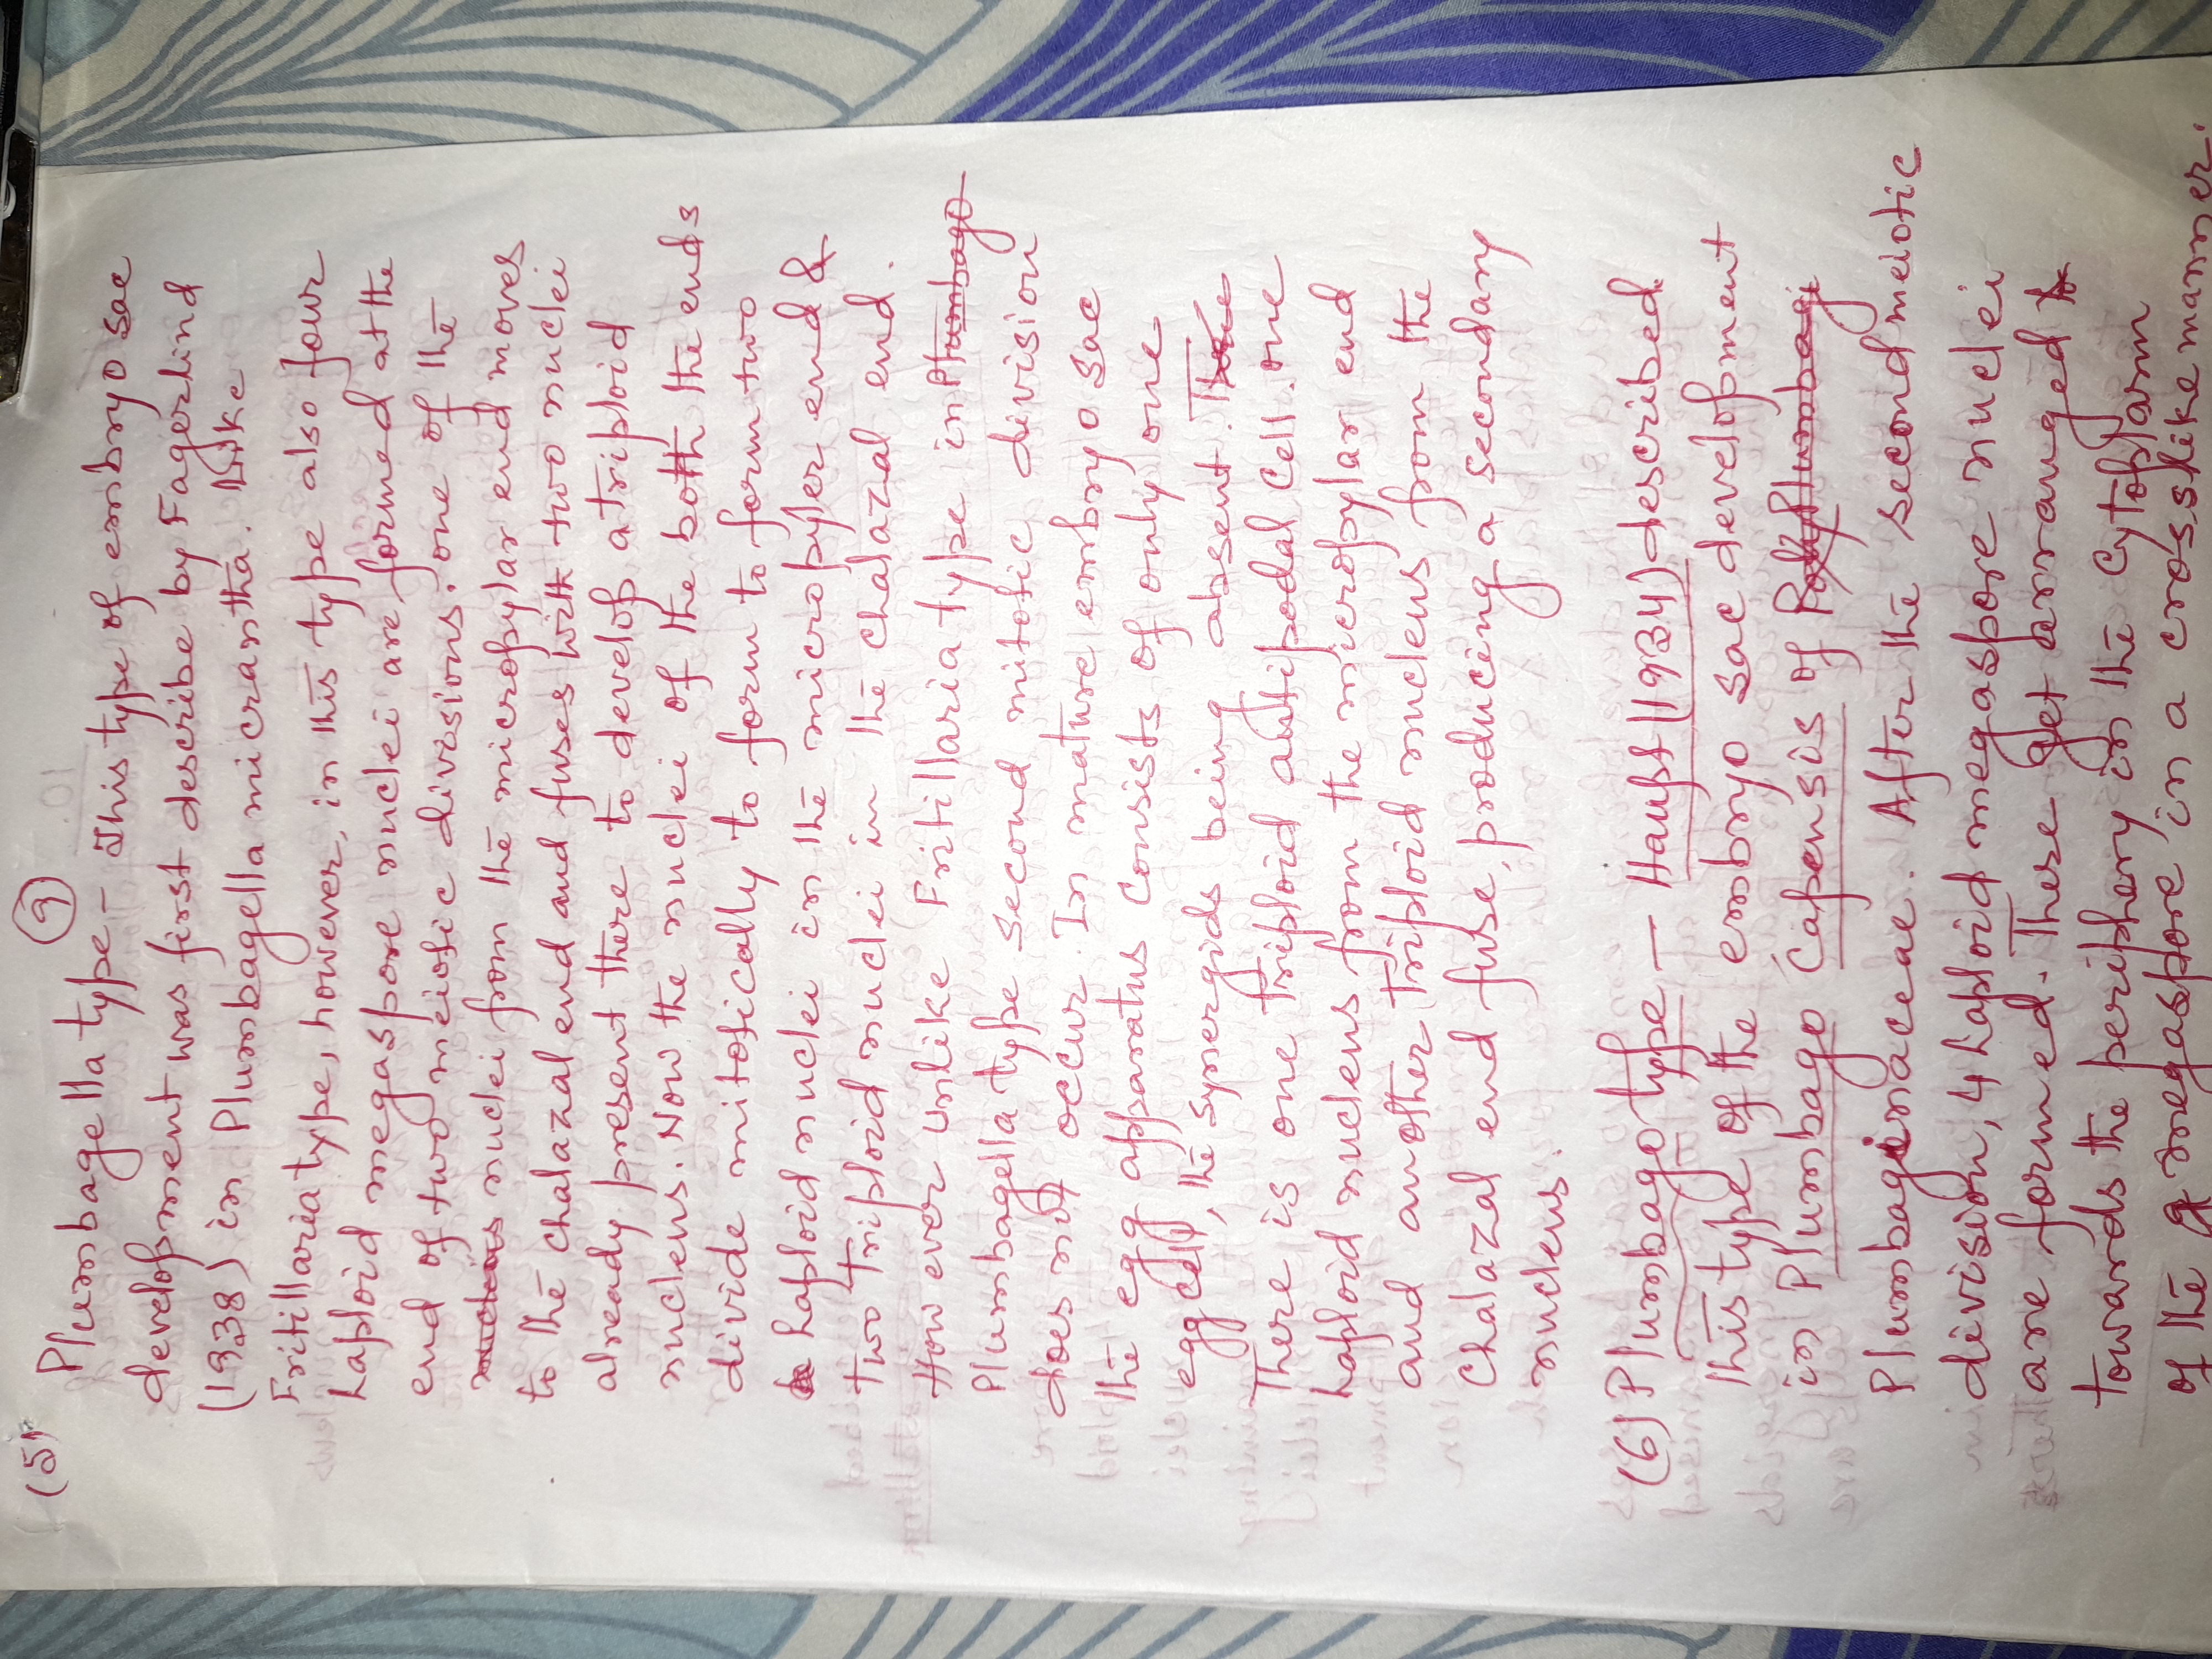 (9)
(5) Plumbagella type - This type of embryo sac
development was first describe by Fagerlind
(1938) in Plumbagella micrantha. Like
Fritillaria type, however, in this type also four
haploid megaspore nuclei are formed at the
end of two meiotic divisions. one of the
nuclei from the micropylar end moves
to the chalazal end and fuses with two nuclei
already present there to develop a triploid
nucleus. Now the nuclei of the both the ends
divide mitotically to form to form two
haploid nuclei in the micropyler end &
two triploid nuclei in the chalazal end.
However unlike Fritillaria type in Plumbago
Plumbagella type second mitotic division
does not occur. In mature embryo sac
the egg apparatus consists of only one
egg cell, the synergids being absent. There
There is one triploid antipodal cell. one
haploid nucleus from the micropylar end
and another triploid nucleus from the
chalazal end fuse, producing a secondary
nucleus.
(6) Plumbago type - Haupt (1934) described
this type of the embryo sac development
in Plumbago Capensis of
Plumbaginaceae. After the second meiotic
division, 4 haploid megaspore nuclei
are formed. These get arranged
towards the periphery in the cytoplasm
of the megaspore in a cross like manner.